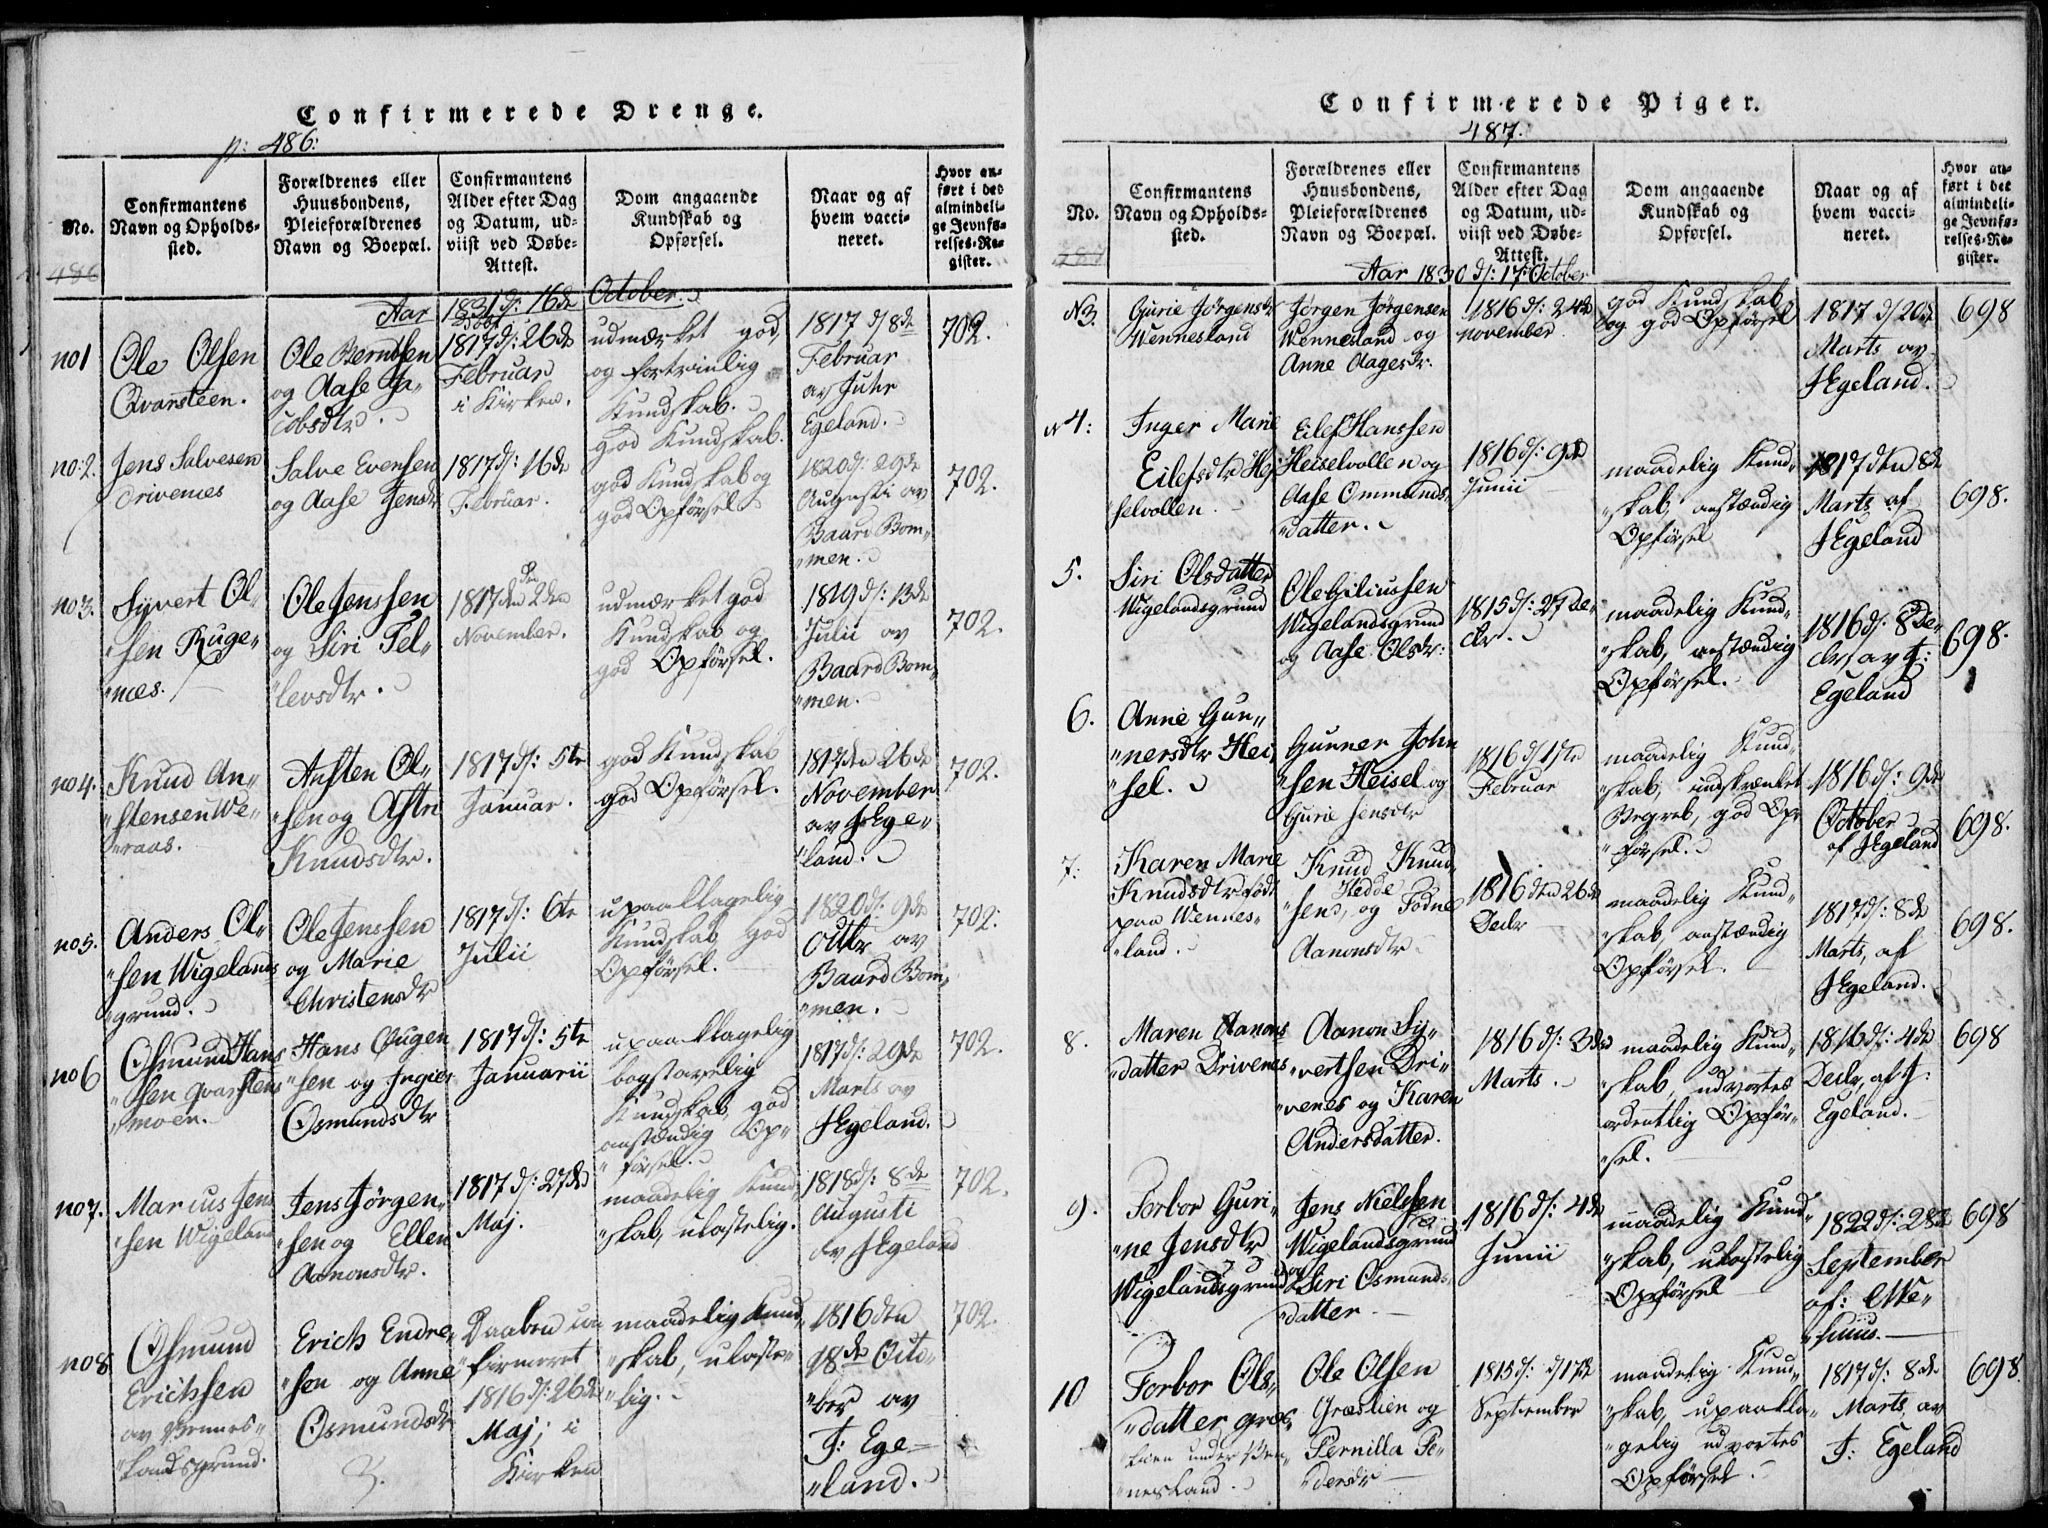 Confirmerede Drenge.
p: 486:
No.
Confirmantens
Navn og Opholds-
sted.
Forældrenes eller
Huusbondens,
Pleieforældrenes
Navn og Boepæl.
Confirmantens
Alder efter Dag
og Datum, ud-
viist ved Døbe-
Attest.
Dom angaaende
Kundskab og
Opførsel.
Naar og af
hvem vacci-
neret.
Hvor an-
ført i det
almindeli-
ge Jevnfø-
relses-Re-
gister.
486
Aar 1831 d: 16de October
no 1
Ole Olsen
Qvarsteen.
Ole Berntsen
og Aase Ja-
cobsdtr.
Døbt
1817 d: 26de
Februar
i Kirken.
udmærket god
og fortrinlig
Kundskab.
God Kundskab.
1817 d 8de
Februar
av Juhr
Egeland.
702.
no: 2.
Jens Salvesen
Drivenes
Salve Evensen
og Aase Jensdr
1817 d: 16de
Februar.
god Kundskab og
god Opførsel
1820 d: 29de
Augusti av
Baard Bom„
„men.
702.
no 3.
Syvert Ol„
„sen Ruge„
„nes.
Ole Jenssen
og Siri Tel„
„levsdtr.
1817 den 2den
November.
udmærket god
Kundskab og
god Opførsel.
1819 d: 13de
Julii av
Baard Bom„
„men.
702.
no 4.
Knud An„
„stensen We„
„raas.
Ansten Ol„
„sen og Astri
Knudsdtr.
1817 d: 5te
Januar.
god Kundskab
god Opførsel.
1817 den 26de
November
av J Ege„
„land.
702.
no 5.
Anders Ol„
„sen Wigelands
„grund.
Ole Jenssen
og Marie
Christensdr
1817 d: 6te
Julii
upaaklagelig
Kundskab, god
Opførsel.
1820 d: 9de
Octbr av
Baard Bom„
„men.
702:
no 6
Osmund Hans
„sen Qvarstens
„moen.
Hans Ougen
„sen og Ingier
Osmundsdtr
1817 d: 5te
Januarii
upaaklagelig
bogstavelig
Kundskab, god
anstændig Op„
„førsel.
1817 d: 29de
Marts av
J Egeland.
702.
no 7.
Marcus Jens
„sen Wigeland
Jens Jørgen„
„sen og Ellen
Aanonsdtr.
1817 d: 27de
Maj.
maadelig Kund„
„skab, ulastelig.
1818 d: 8de
Augusti
av J Egeland
702.
no 8
Osmund
Erichsen
av Vennes„
„landsgrund.
Erich Endre„
„sen og Anne
Osmundsdr
Daaben con
„firmeret
1816 d: 26de
Maj; i
Kirken
maadelig Kund„
„skab, ulaste„
„lig.
1816 den
18de Octo„
„ber av
J: Ege-
„land.
702.
Confirmerede Piger.
487.
No.
Confirmantens
Navn og Opholds-
sted.
Forældrenes eller
Huusbondens,
Pleieforældrenes
Navn og Boepæl.
Confirmantens
Alder efter Dag
og Datum, ud-
viist ved Døbe-
Attest.
Dom angaaende
Kundskab og
Opførsel.
Naar og af
hvem vacci-
neret.
Hvor an-
ført i det
almindeli-
ge Jevnfø-
relses-Re-
gister.
487
Aar 1830 d: 17de October
N 3.
Gurie Jørgensdr
Wennesland
Jørgen Jørgensen
Wennesland og
Anne Aagesdr:
1816 d: 24de
november
god Kundskab
og god Opførsel
1817 d 20de
Marts av
J Egeland.
698
N 4:
Inger Marie
Eilefsdtr Hei„
selvollen.
Eilef Hanssen
Heiselvollen og
Aase Ommunds„
„datter.
1816 d: 9de
Junii
maadelig Kund„
„skab, anstændig
Opførsel
1817 den 8de
Marts af
J Egeland
698.
5.
Siri Olsdatter
Wigelandsgrund
Ole Giliussen
Wigelandsgrund
og Aase Olsdr:
1815 d: 27 De„
cbr.
maadelig Kund„
„skab, anstændig
Opførsel.
1816 d: 8 De„
cbr, av J:
Egeland
698.
6.
Anne Gun„
„nersdtr Hei„
„sel.
Gunner John
„sen Heisel og
Gurie Jensdtr
1816 d 1ste
Februar
maadelig Kund„
„skab, indskrænket
Begreb, god Op„
„førsel.
1816 d: 9de
October
af J Egeland
698.
7:
Karen Marie
Knudsdtr født
paa Wennes„
„land.
Knud Knud„
Hedde
„sen, og Todne
Aanonsdtr
1816 den 26de
Decbr
maadelig Kund„
„skab, anstændig
Opførsel.
1817 d: 8de
Marts, af
J Egeland.
698.
8.
Maren Aanons
„datter Drivenes
Aanon Sy„
„vertsen Dri„
„venes og Karen
Andersdatter.
1816 d: 3de
Marts.
maadelig Kund„
„skab, udvortes
ordentlig Opfør„
„sel.
1816 d: 4de
Decbr, af J:
Egeland.
698
9.
Torbor Guri„
„ne Jensdtr
Wigelandsgrund
Jens Nielssen
Wigelandsgrund
og Siri Osmunds„
„datter
1816 d: 4de
Junii
maadelig Kund„
„skab, ulastelig
Opførsel
1822 d: 28de
September
af:
698
10
Torbor Ols„
„datter, Græs„
„lien under Ven„
„nesland.
Ole Olsen
Græslien og
Pernilla Pe„
„dersdr
1815 d: d 17de
September
maadelig Kund„
„skab, upaakla„
„gelig udvortes
Opførsel.
1817 d: 8de
Marts av
J: Egeland
698.